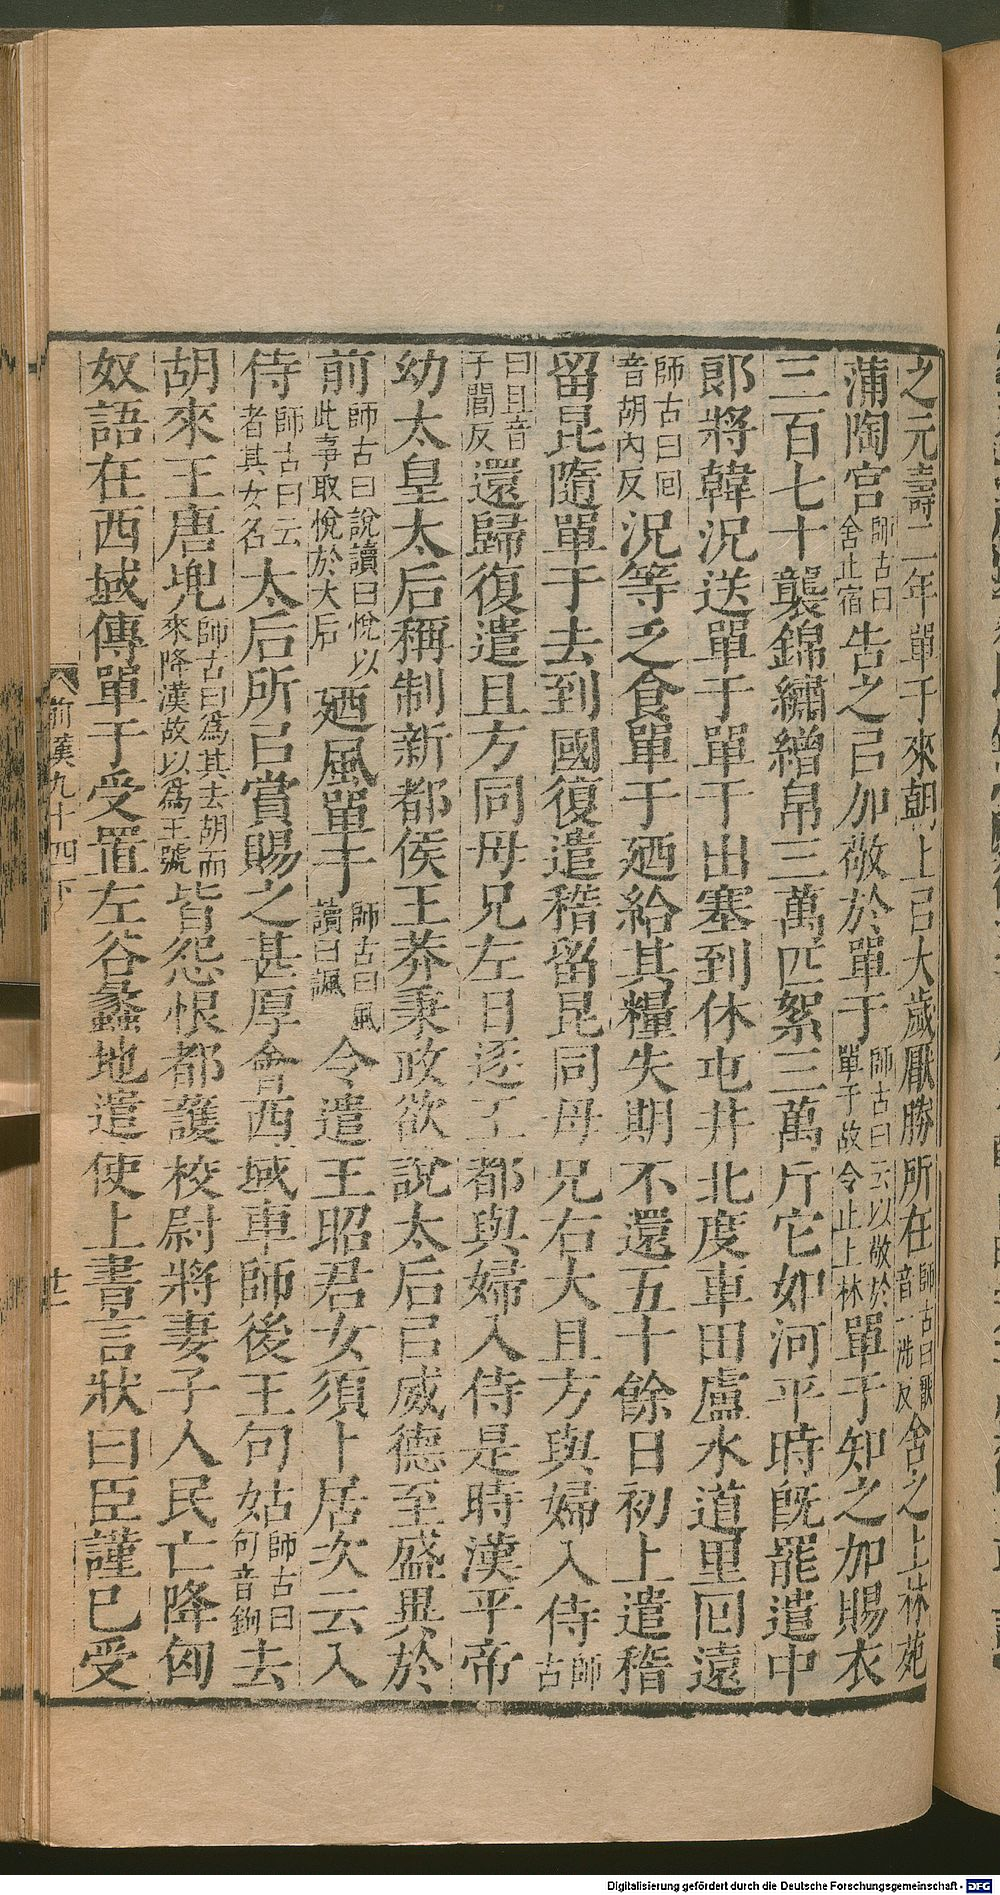 之元壽二年單于來朝上㠯大歲厭勝所在師古曰厭音一涉反舍之上林苑
蒲陶宮師古曰舍止宿告之㠯加敬於單于師古曰云以敬於單于故令止上林單于知之加賜衣
三百七十襲錦繡繒帛三萬匹絮三萬斤它如河平時旣罷遣中
郎將韓況送單于單于出塞到休屯井北度車田盧水道里回遠
師古曰回音胡內反況等乏食單于廼給其糧失期不還五十餘日初上遣稽
留昆隨單于去到國復遣稽留昆同母兄右大且方與婦入侍師古
曰且音子閭反還歸復遣且方同母兄左日逐王都與婦入侍是時漢平帝
幼太皇太后稱制新都侯王莽秉政欲說太后㠯威德至盛異於
前師古曰說讀曰悅以此事取悅於太后廼風單于師古曰風讀曰諷令遣王昭君女須卜居次云入
侍師古曰云者其女名太后所㠯賞賜之甚厚會西域車師後王句姑師古曰句音鉤去
胡來王唐兜師古曰爲其去胡而來降漢故以爲王號皆怨恨都護校尉將妻子人民亡降匈
奴語在西域傳單于受置左谷蠡地遣使上書言狀曰臣謹已受
前漢九十四下
廿二
Digitalisierung gefördert durch die Deutsche Forschungsgemeinschaft - DFG